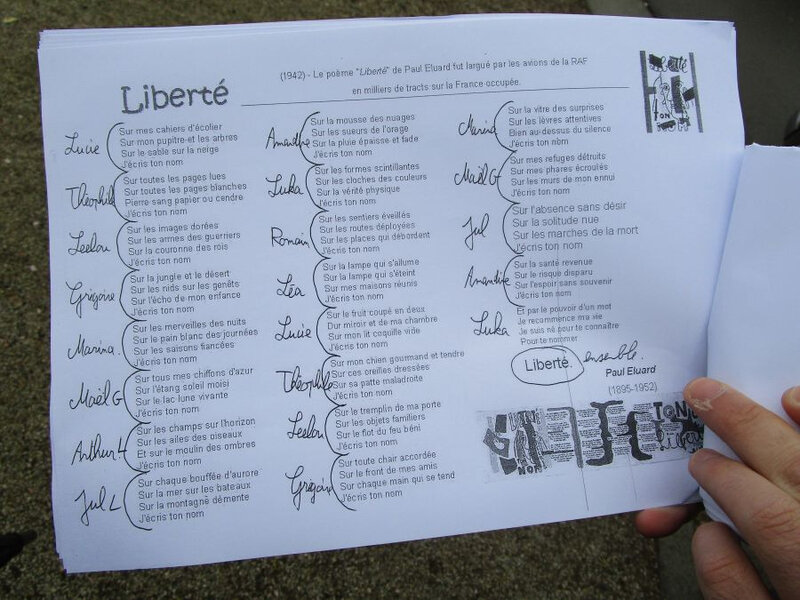 Liberté
(1942) - Le poème "Liberté" de Paul Eluard fut largué par les avions de la RAF
en milliers de tracts sur la France occupée.
Lucie
Sur mes cahiers d'écolier
Sur mon pupitre et les arbres
Sur le sable sur la neige
J'écris ton nom
Théophile
Sur toutes les pages lues
Sur toutes les pages blanches
Pierre sang papier ou cendre
J'écris ton nom
Leelou
Sur les images dorées
Sur les armes des guerriers
Sur la couronne des rois
J'écris ton nom
Grégoire
Sur la jungle et le désert
Sur les nids sur les genêts
Sur l'écho de mon enfance
J'écris ton nom
Marina.
Sur les merveilles des nuits
Sur le pain blanc des journées
Sur les saisons fiancées
J'écris ton nom
Maël G
Sur tous mes chiffons d'azur
Sur l'étang soleil moisi
Sur le lac lune vivante
J'écris ton nom
Arthur H
Sur les champs sur l'horizon
Sur les ailes des oiseaux
Et sur le moulin des ombres
J'écris ton nom
Jul L
Sur chaque bouffée d'aurore
Sur la mer sur les bateaux
Sur la montagne démente
J'écris ton nom
Amandine
Sur la mousse des nuages
Sur les sueurs de l'orage
Sur la pluie épaisse et fade
J'écris ton nom
Luka
Sur les formes scintillantes
Sur les cloches des couleurs
Sur la vérité physique
J'écris ton nom
Romain
Sur les sentiers éveillés
Sur les routes déployées
Sur les places qui débordent
J'écris ton nom
Léa
Sur la lampe qui s'allume
Sur la lampe qui s'éteint
Sur mes maisons réunis
J'écris ton nom
Lucie
Sur le fruit coupé en deux
Dur miroir et de ma chambre
Sur mon lit coquille vide
J'écris ton nom
Théophile
Sur mon chien gourmand et tendre
Sur ces oreilles dressées
Sur sa patte maladroite
J'écris ton nom
Leelou
Sur le tremplin de ma porte
Sur les objets familiers
Sur le flot du feu béni
J'écris ton nom
Grégoire
Sur toute chair accordée
Sur le front de mes amis
Sur chaque main qui se tend
J'écris ton nom
Marina
Sur la vitre des surprises
Sur les lèvres attentives
Bien au-dessus du silence
J'écris ton nom
Maël G
Sur mes refuges détruits
Sur mes phares écroulés
Sur les murs de mon ennui
J'écris ton nom
Jul
Sur l'absence sans désir
Sur la solitude nue
Sur les marches de la mort
J'écris ton nom
Amandine
Sur la santé revenue
Sur le risque disparu
Sur l'espoir sans souvenir
J'écris ton nom
Luka
Et par le pouvoir d'un mot
Je recommence ma vie
Je suis né pour te connaître
Pour te nommer
Liberté. ensemble.
Paul Eluard
(1895-1952)